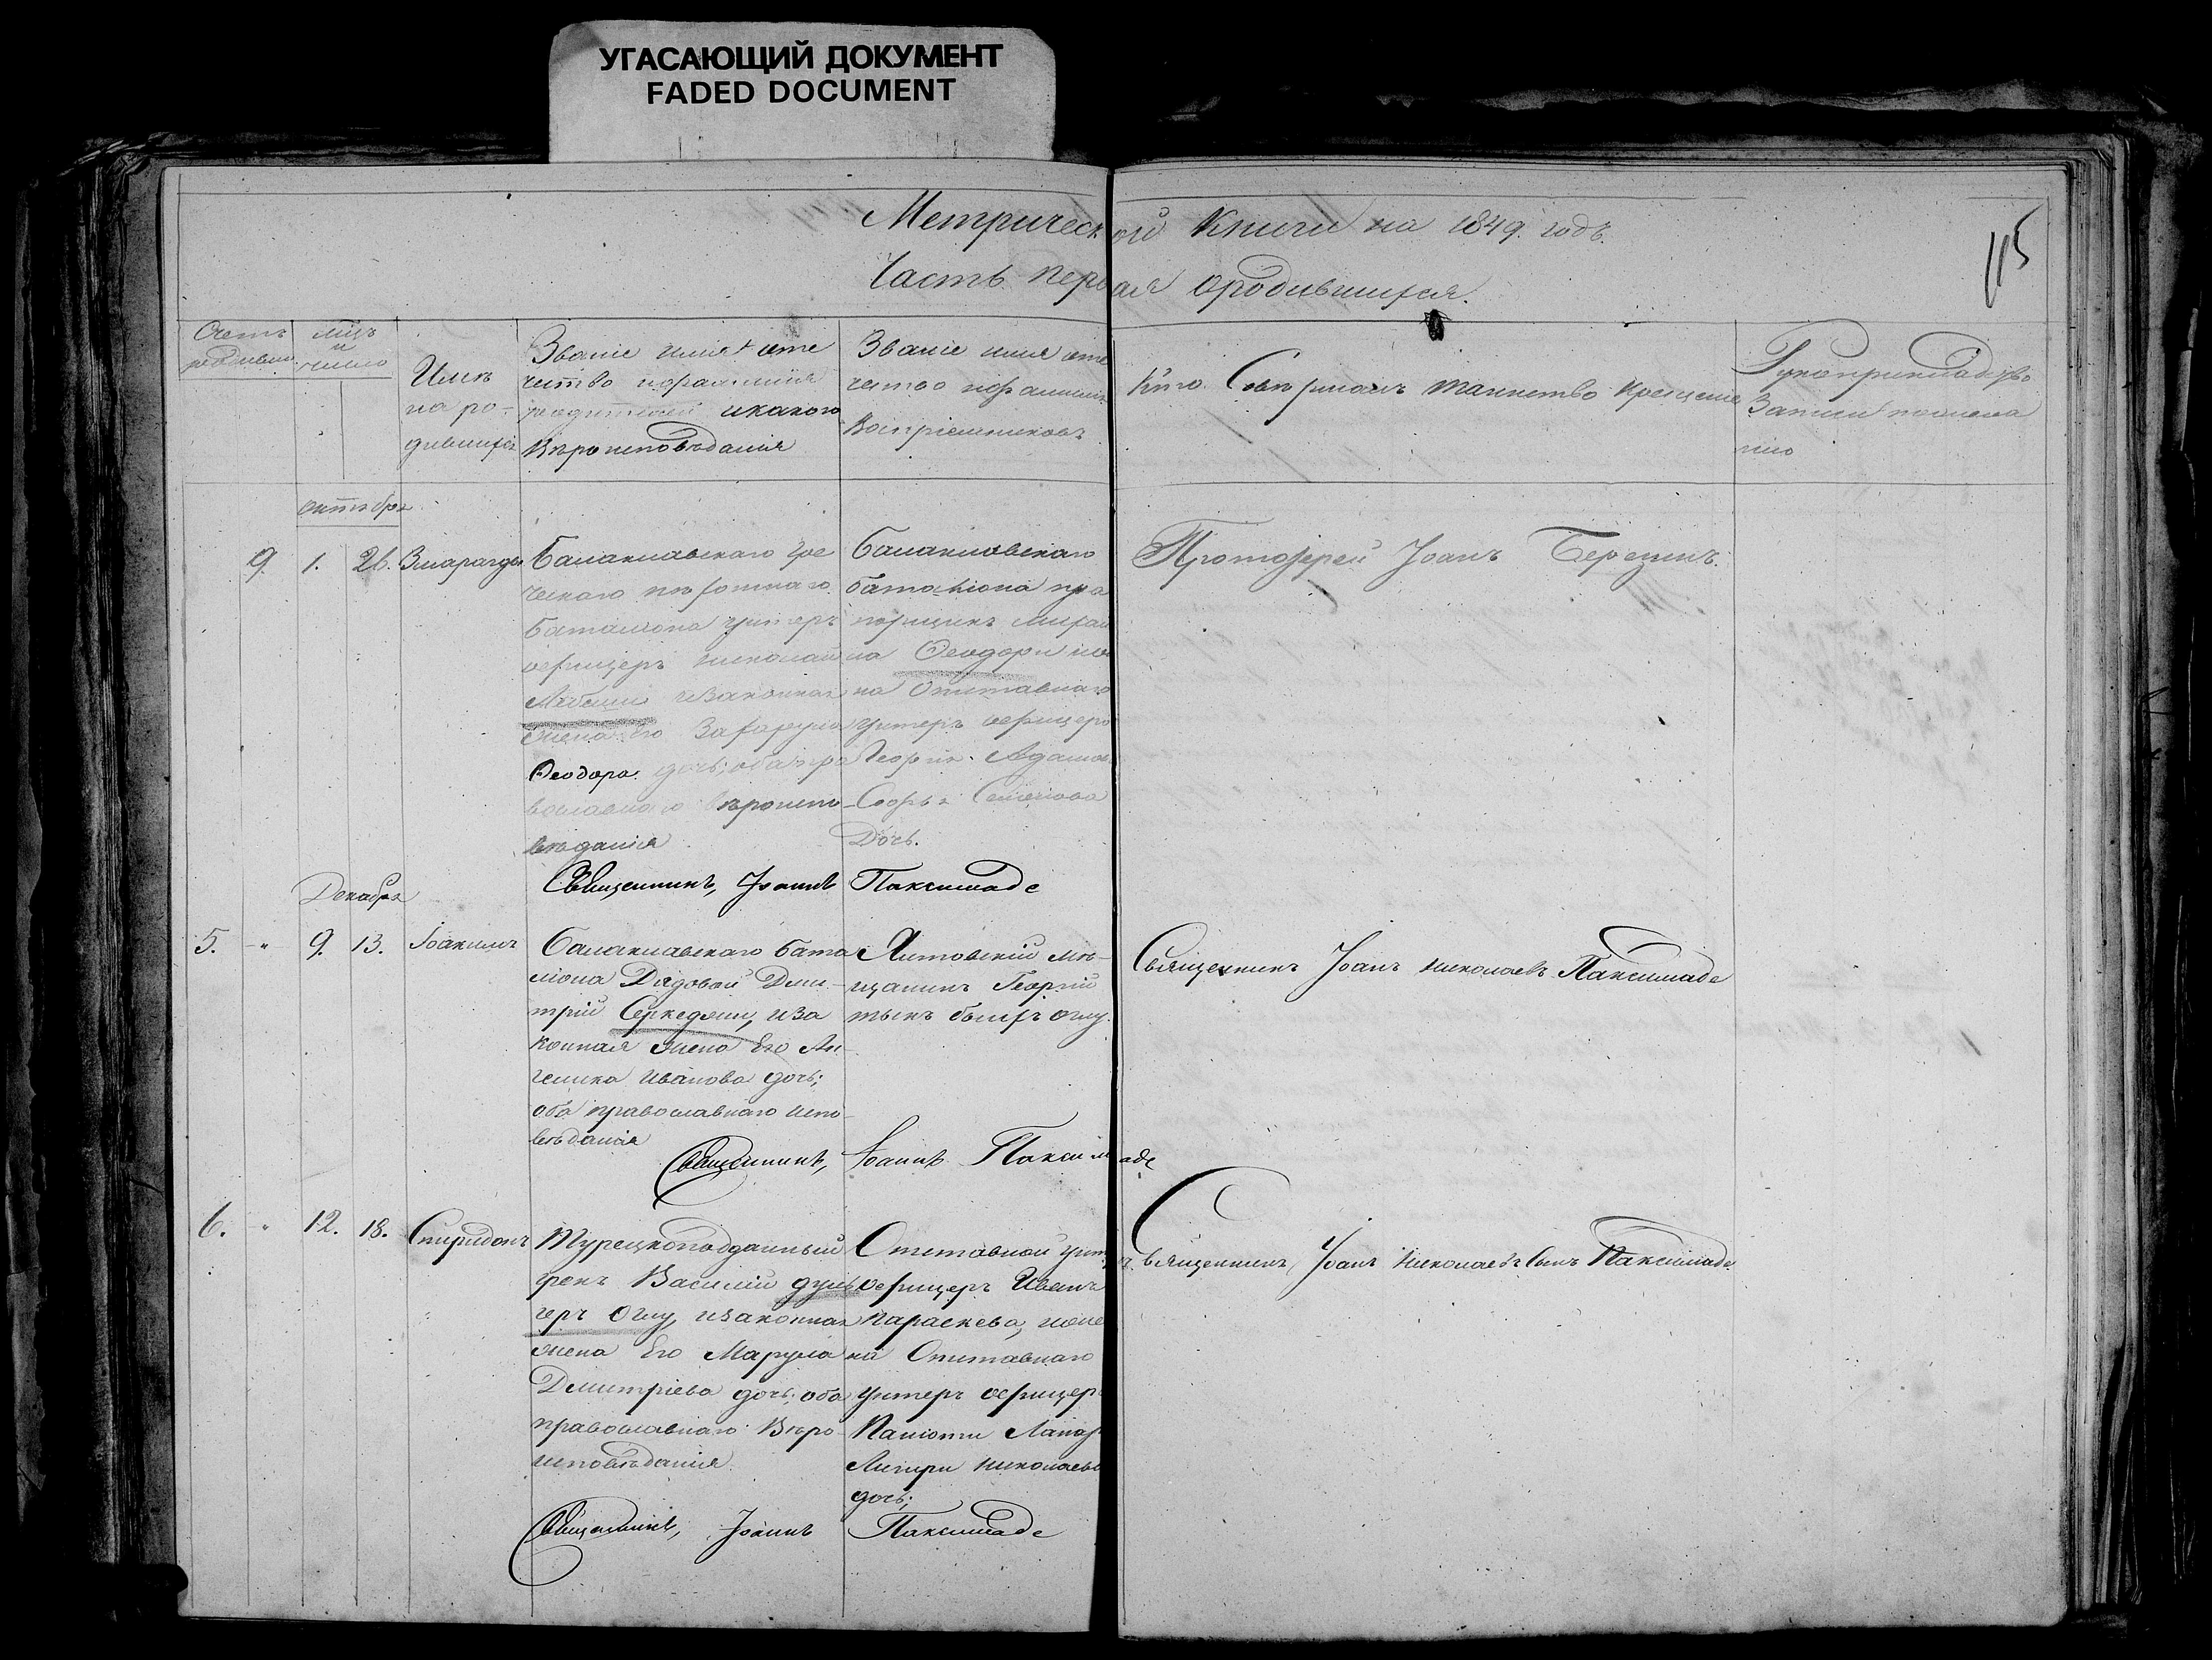 УГАСАЮЩИЙ ДОКУМЕНТ
FADED DOCUMENT
Метрической Книги на 1849. годъ.
115
Часть первая ородившихся.
Счетъ родивш.
мцъ и число
Имя
на ро-
дившихся
Званіе имя оте
чество ифамилія
родителей икакого
Вѣроисповѣданія
Званіе имя оте
чество ифамилія
Воспріемниковъ
Кто Совершалъ таинство крещенія
Рукоприкладство
Записи
октября
9. 1. 26.
Балаклавскаго Гре
ческаго пѣхотнаго
баталіона унтеръ
офицеръ Николай
изаконная
жена Его
Ѳеодора дочь; оба пра
вославнаго вѣроиспо
вѣданія
Балаклавскаго
баталіона пра
порщикъ Михаи
на Отставнаго
унтеръ офицера
Георгія
Софья Семенова
Дочь.
Протоіерей Іоанъ Березинъ.
Священникъ, Іоаннъ Паксимаде
Декабря
5. " 9. 13. Іоакимъ
Балаклавскаго бата
ліона Рядовой Дми-
трій Серкедзи, иза
конная жена Его Ан
гелика Иванова дочь;
оба православнаго испо
вѣданія
Ялтовскій мѣ-
щанинъ Георгій
Священникъ Іоанъ Николаевъ Паксимаде
Священникъ, Іоаннъ Паксимаде
6. " 12. 18. Спиридонъ
Турецкоподданный
грекъ Василій
геръ Оглу, изаконная
жена Его Марула
Дмитріева дочь; оба
православнаго Вѣро
исповѣданія.
Отставной унте
офицеръ Иванъ
Параскева, иже
на Отставнаго
унтеръ офицера
Паніоти
Лигири Николаева
дочь;
Священникъ, Іоанъ Николаевъ Сынъ Паксимаде
Священникъ, Іоаннъ Паксимаде